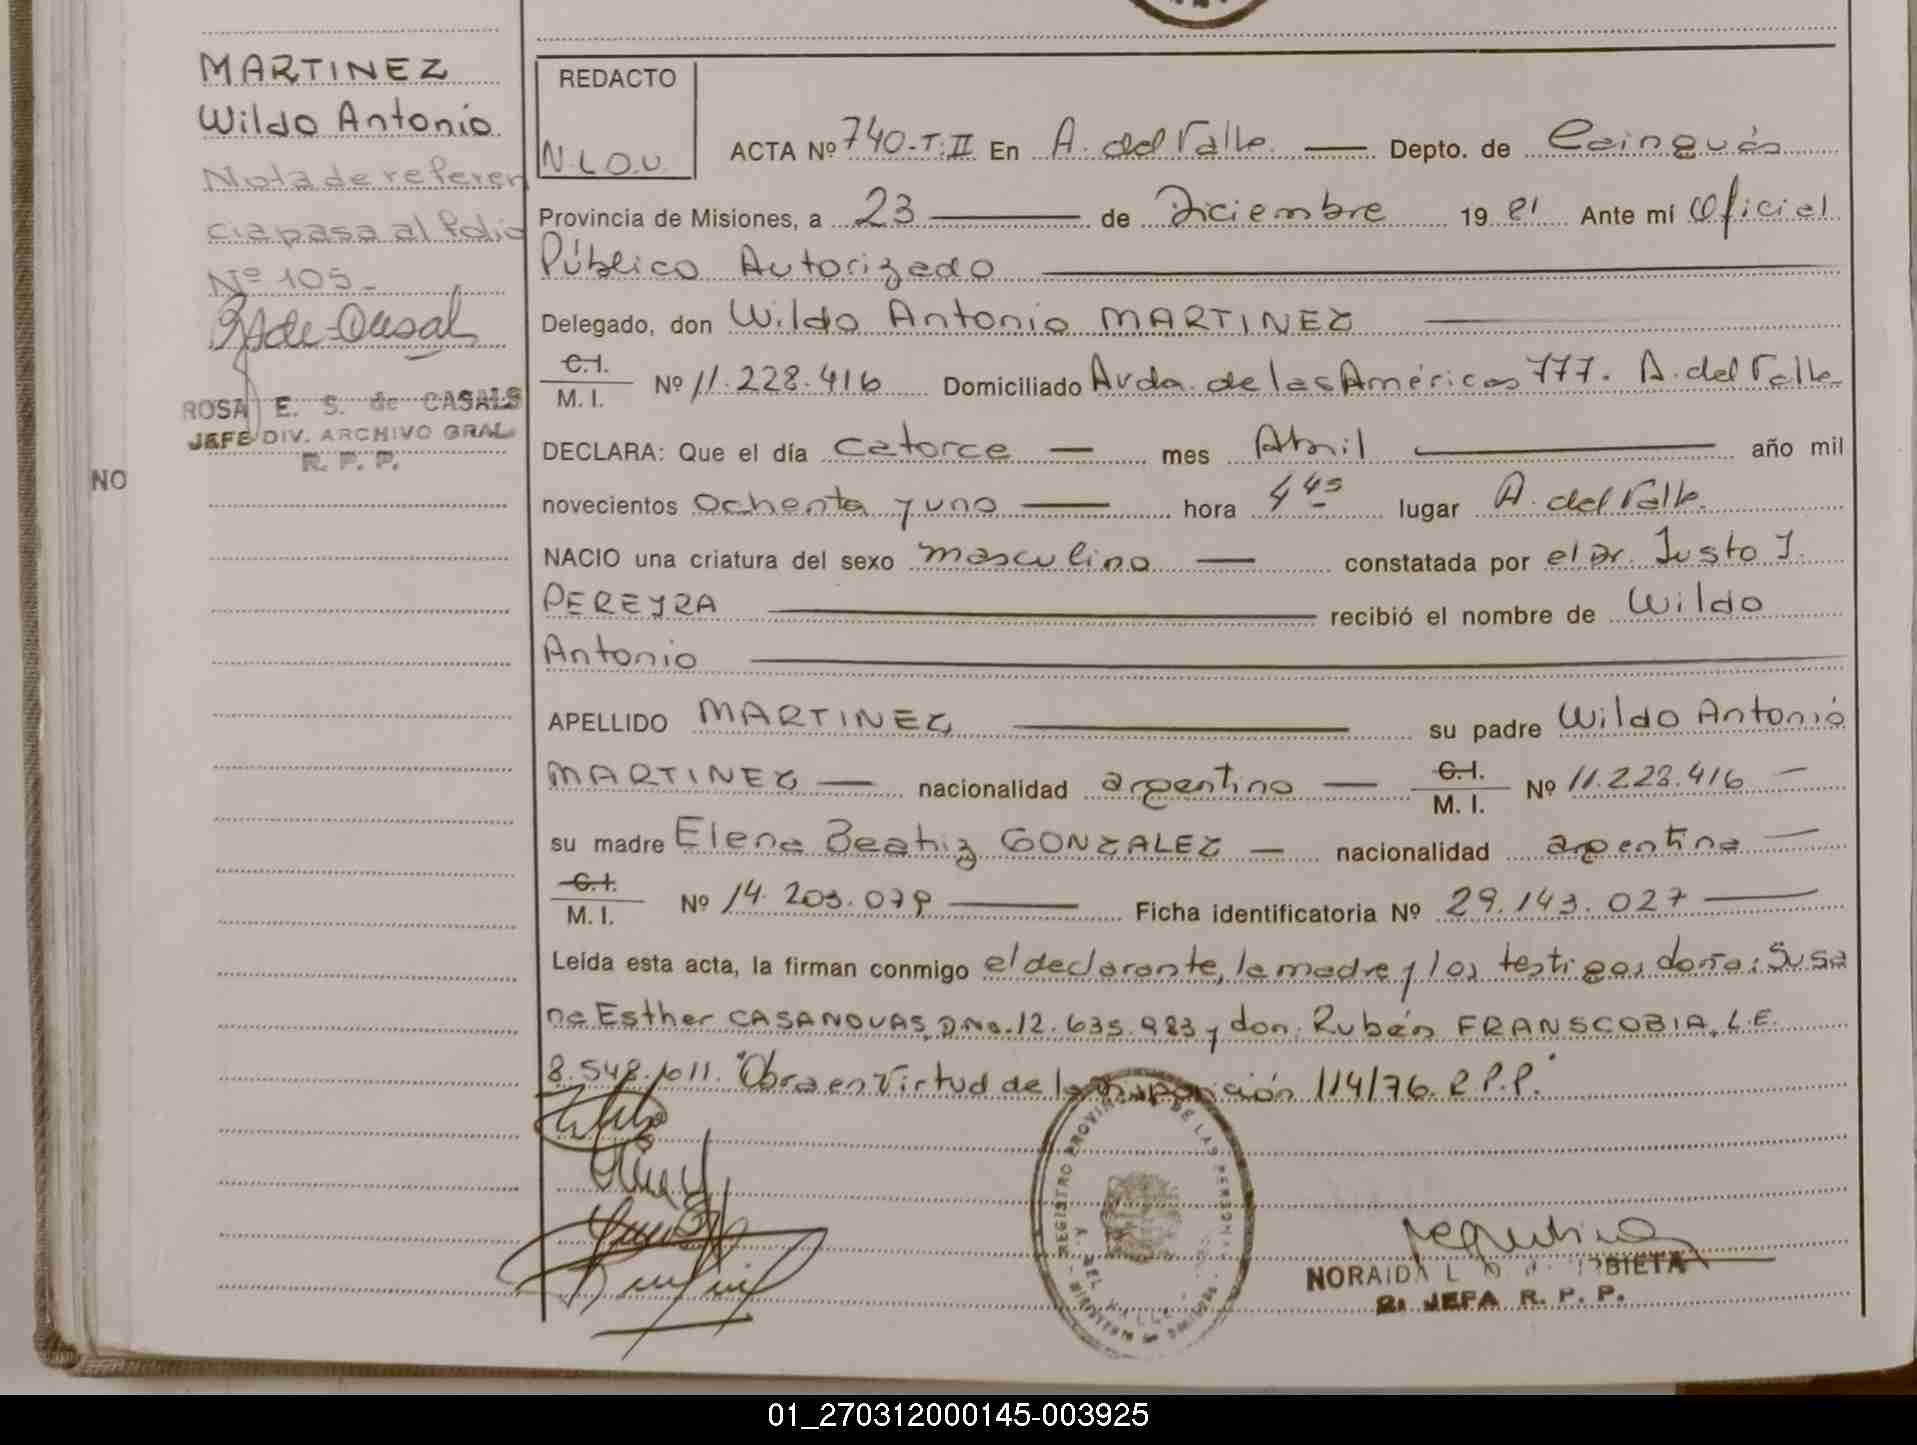 MARTINEZ
Wildo Antonio
Nota de referen
cia pasa al folio
Nº 105_
ROSA E. S. de CASALS
JEFE DIV. ARCHIVO GRAL
R. P. P.
NO
REDACTO
N.L.O.U.
ACTA Nº 740-T.II En A. del Valle. — Depto. de Cainguás
Provincia de Misiones, a 23 — de Diciembre 19 81 Ante mí Oficial
Público Autorizado
Delegado, don Wildo Antonio MARTINEZ
C.I.
M. I. Nº 11.228.416 Domiciliado Avda. de las Américas 777. A. del Valle
DECLARA: Que el día catorce — mes Abril — año mil
novecientos ochenta y uno — hora 4 45 lugar A. del Valle.
NACIO una criatura del sexo masculino — constatada por el Dr. Justo J.
PEREYRA — recibió el nombre de Wildo
Antonio
APELLIDO MARTINEZ — su padre Wildo Antonio
MARTINEZ — nacionalidad argentino — C.I.
M. I. Nº 11.228.416 —
su madre Elena Beatriz GONZALEZ — nacionalidad argentina —
C.I.
M. I. Nº 14.203.079 — Ficha identificatoria Nº 29.143.027 —
Leída esta acta, la firman conmigo el declarante, la madre y los testigos doña: Susa
na Esther CASANOVAS, D.N.I. 12.635.983 y don: Rubén FRANSCOBIA, L.E.
8.548.011. "Obra en Virtud de la Disposición 114/76. R.P.P."
REGISTRO PROVINCIAL DE LAS PERSONAS
NORAIDA L
2a JEFA R. P. P.
01_270312000145-003925